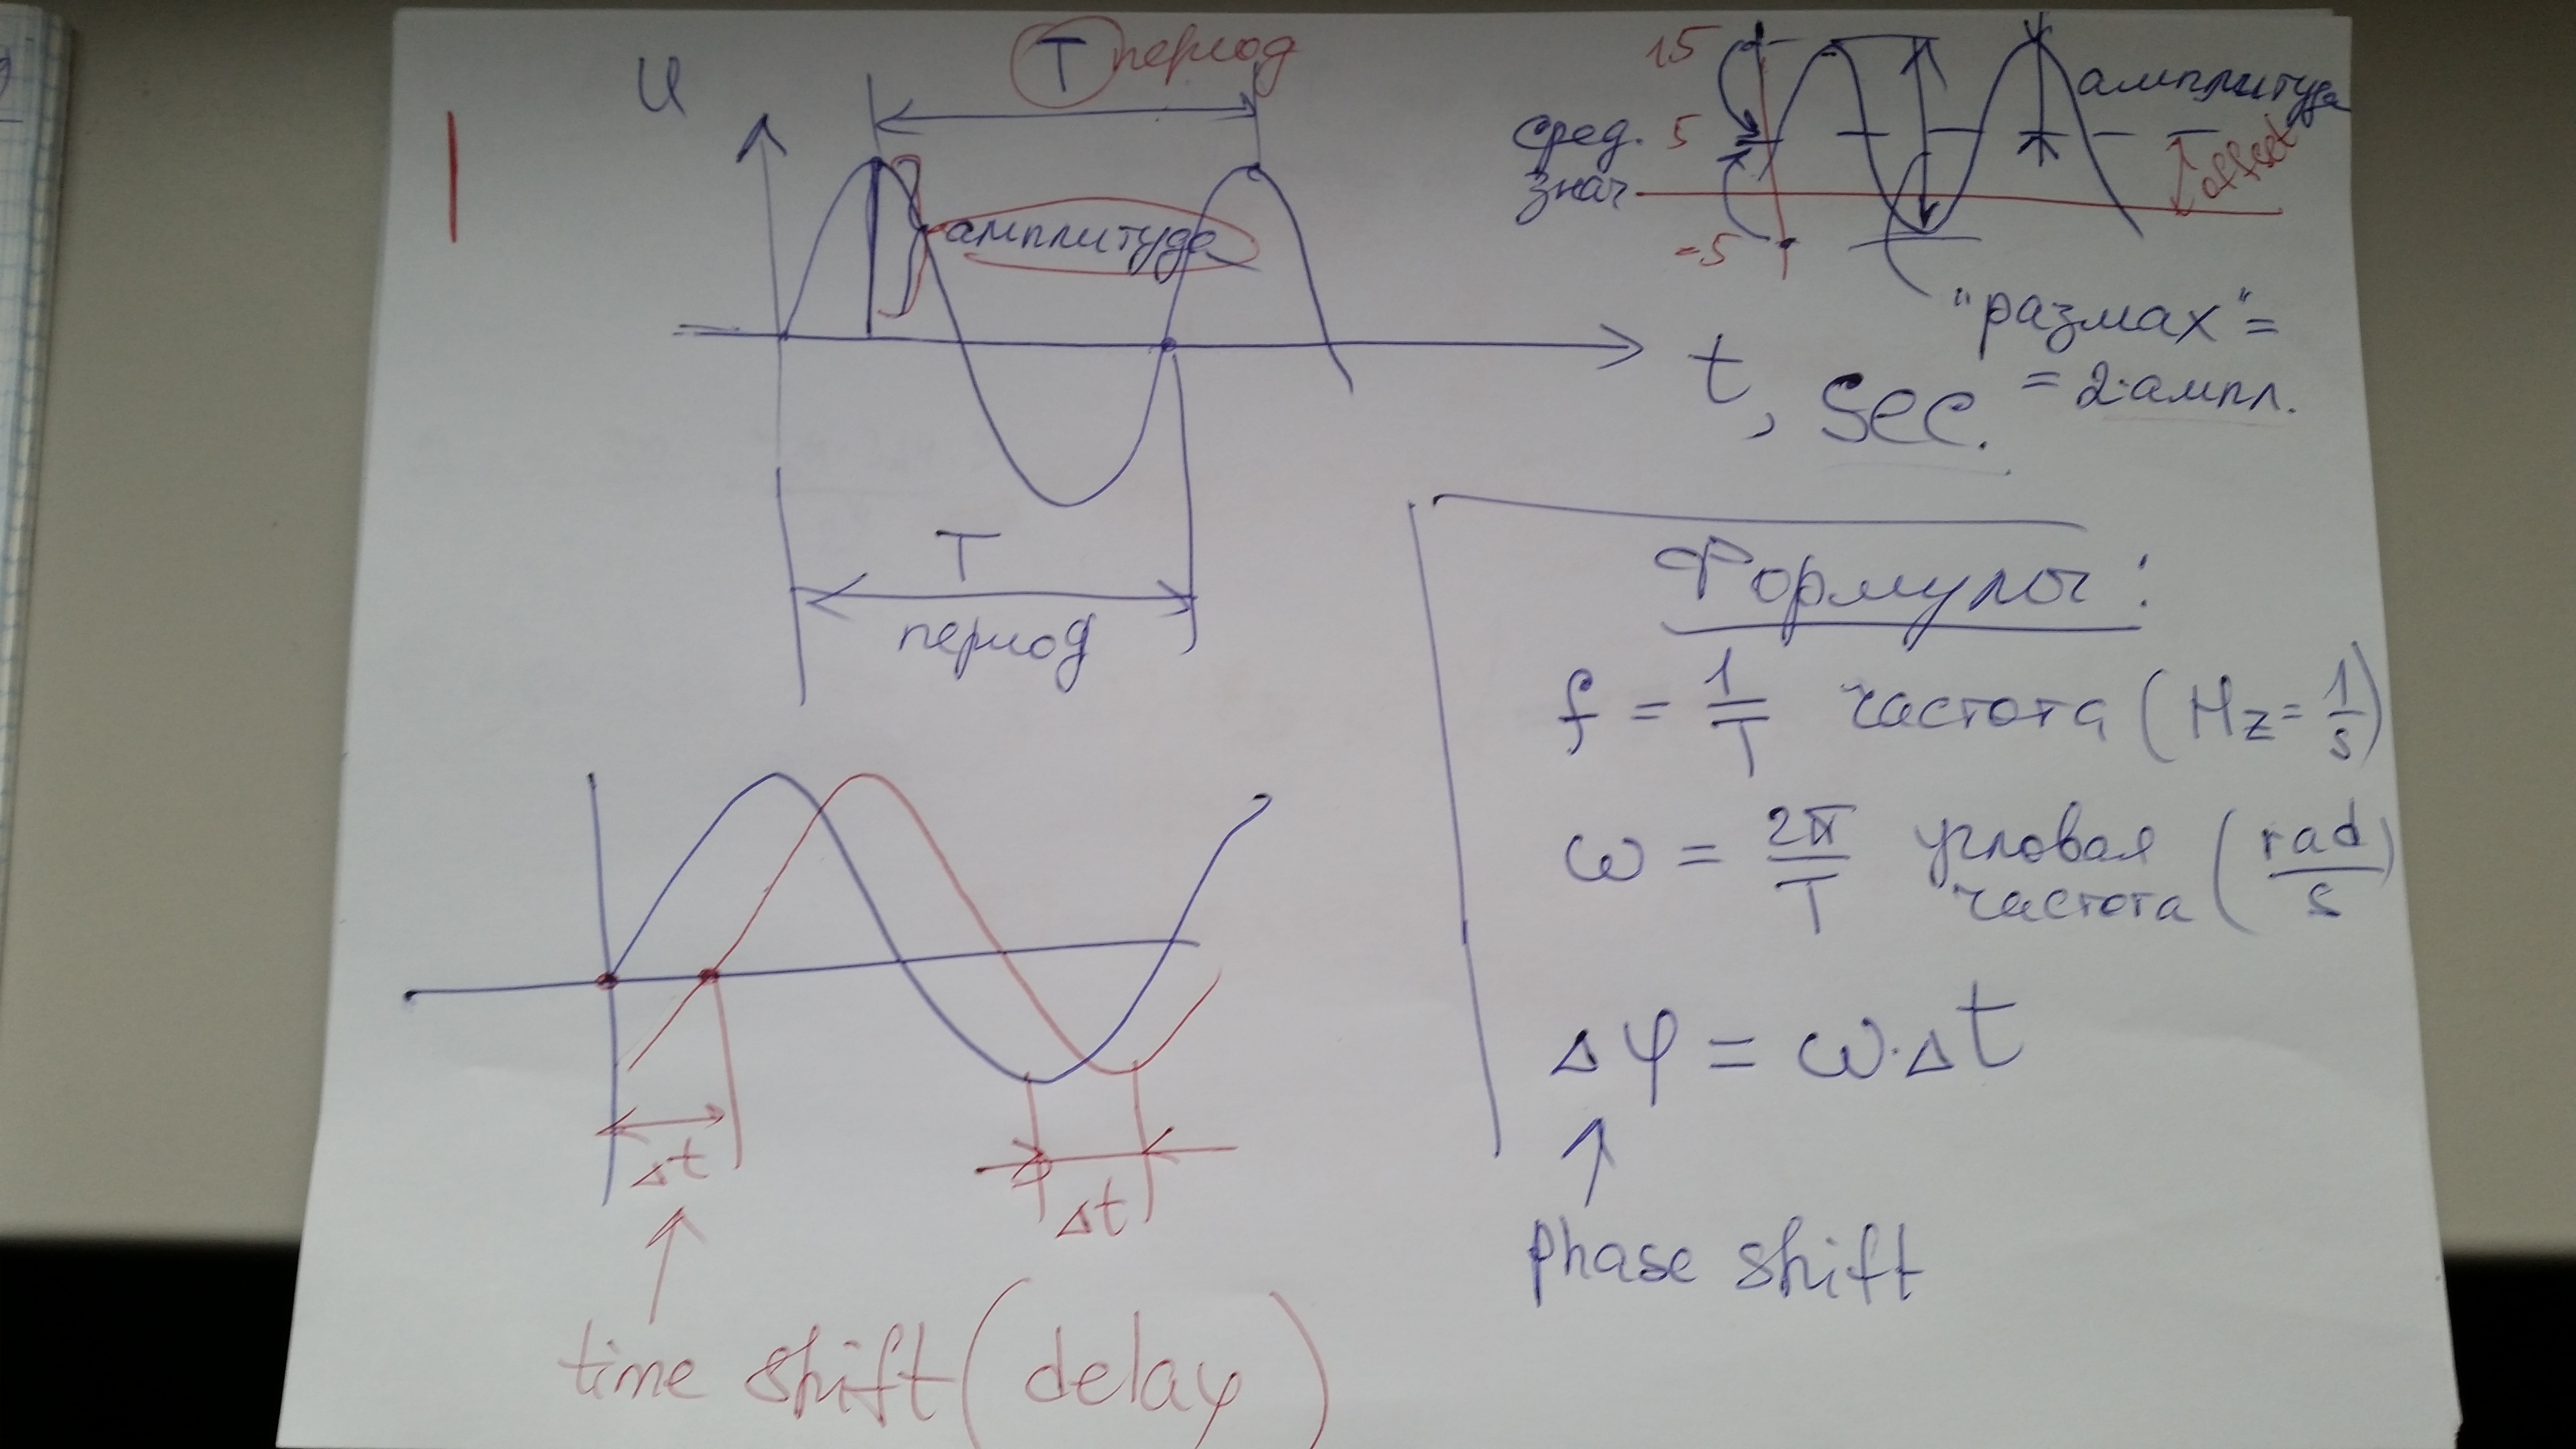 U
T период
амплитуда
t, sec.
T
период
15
сред. 5
знач.
-5
амплитуда
offset
"размах" =
= 2·ампл.
Формулы:
f = 1/T частота (Hz = 1/s)
ω = 2π/T угловая частота (rad/s
Δφ = ω·Δt
↑
phase shift
Δt
Δt
↑
time shift (delay)